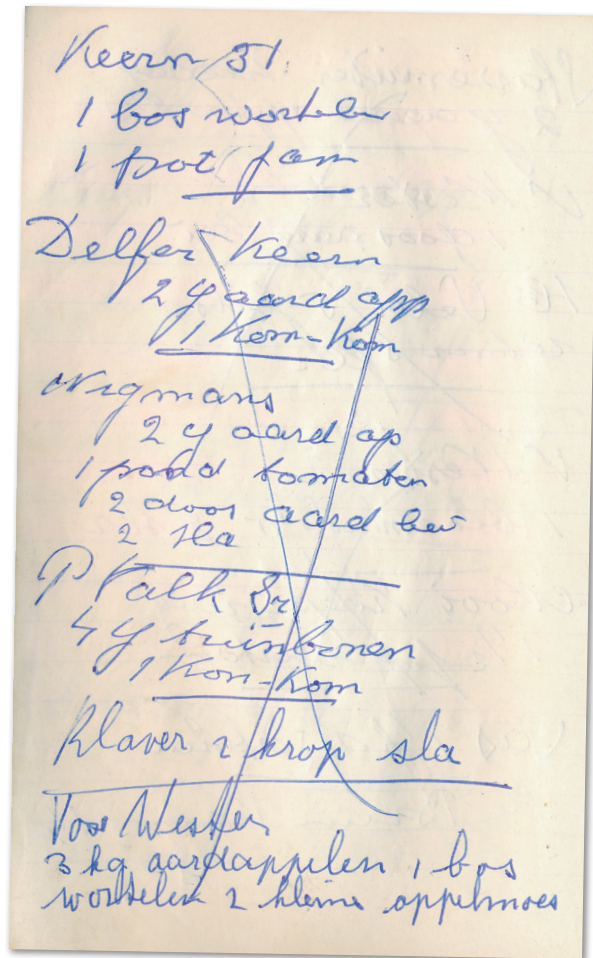 Keern 31.
1 bos wortelen
1 pot jam
Delfer Keern
2 y aard app
1 Kom-Kom
Nigmans
2 y aard ap
1 pond tomaten
2 doos aard bei
2 sla
P Valk Sr
4 y tuinbonen
1 Kom-Kom
Klaver 2 krop sla
Wester
3 kg aardappelen 1 bos
wortelen 2 kleine appelmoes